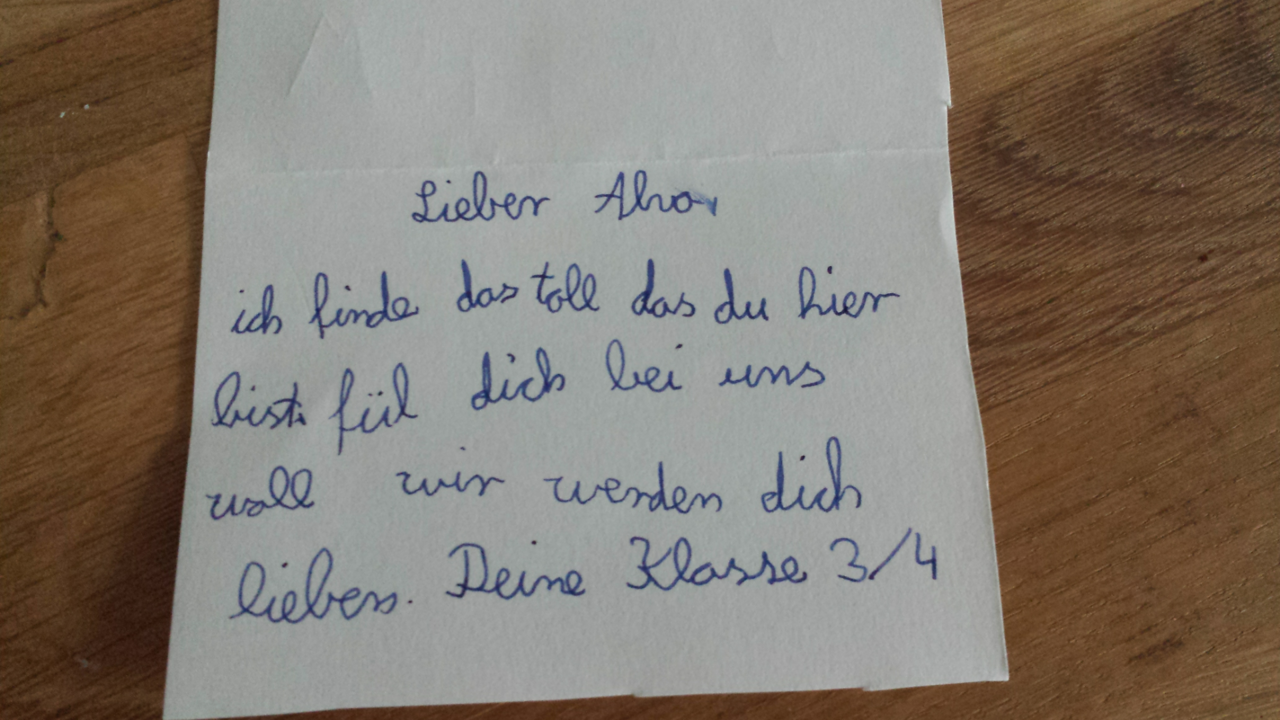 Lieber Alvar
ich finde das toll das du hier
bist. fül dich bei uns
woll wir werden dich
lieben. Deine Klasse 3/4